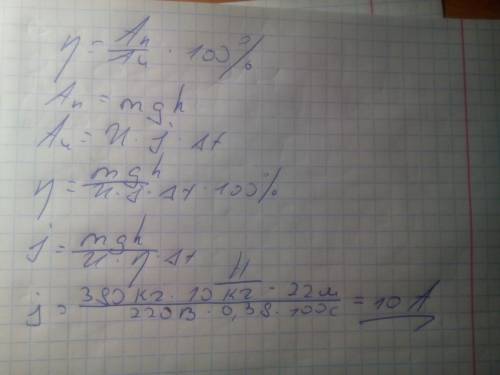 η = Aп / Aч · 100%
Aп = mgh
Aч = U · J · Δt
η = mgh / U · J · Δt · 100%
J = mgh / U · η · Δt
J = 380 кг · 10 Н/кг · 22м / 220В · 0,38 · 100с = 10 А